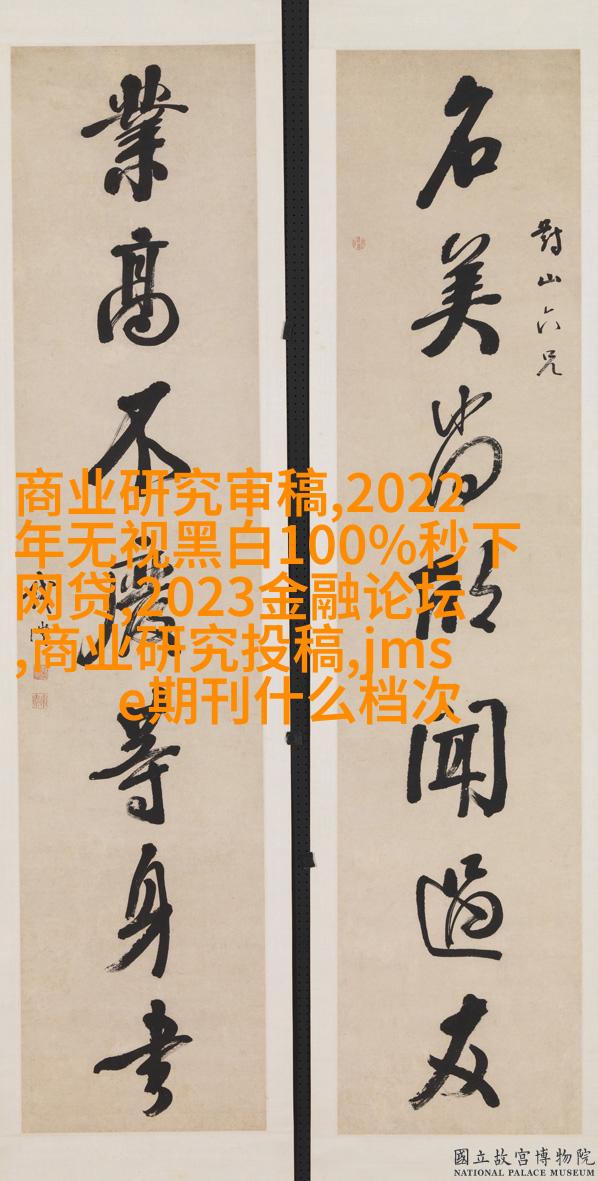 對山六兄
名美尚欣聞過友
業高不廢等身書
商业研究审稿,2022
年无视黑白100%秒下
网贷,2023金融论坛
,商业研究投稿,jms
e期刊什么档次
國立故宮博物院
NATIONAL PALACE MUSEUM